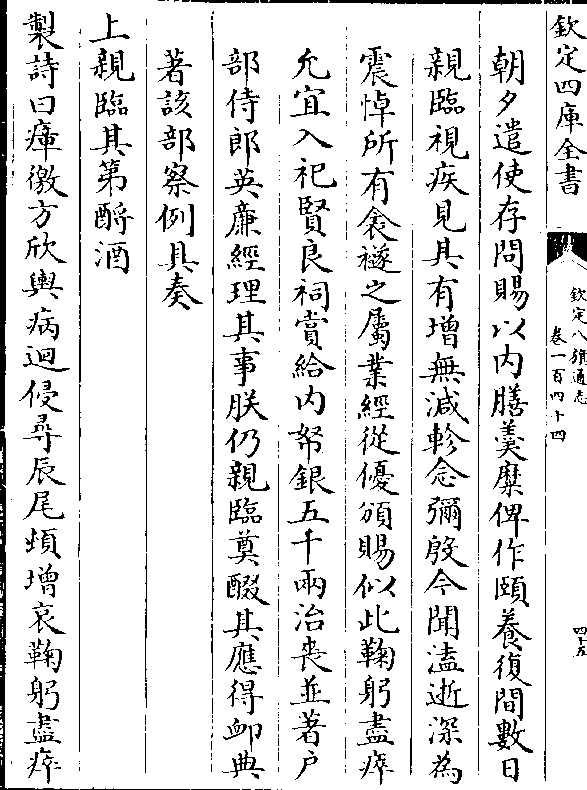 欽定四庫全書
欽定八旗通志
卷一百四十四
四十五
朝夕遣使存問賜以内膳羮糜俾作頤養復間數日
親臨視疾見其有增無減軫念彌殷今聞溘逝深為
震悼所有衾禭之屬業經從優頒賜似此鞠躬盡瘁
允宜入祀賢良祠賞給内帑銀五千兩治喪並著戶
部侍郎英亷經理其事朕仍親臨奠醊其應得䘏典
著該部察例具奏
上親臨其第酹酒
製詩曰瘴徼方欣輿病迴侵尋辰尾頻增哀鞠躬盡瘁